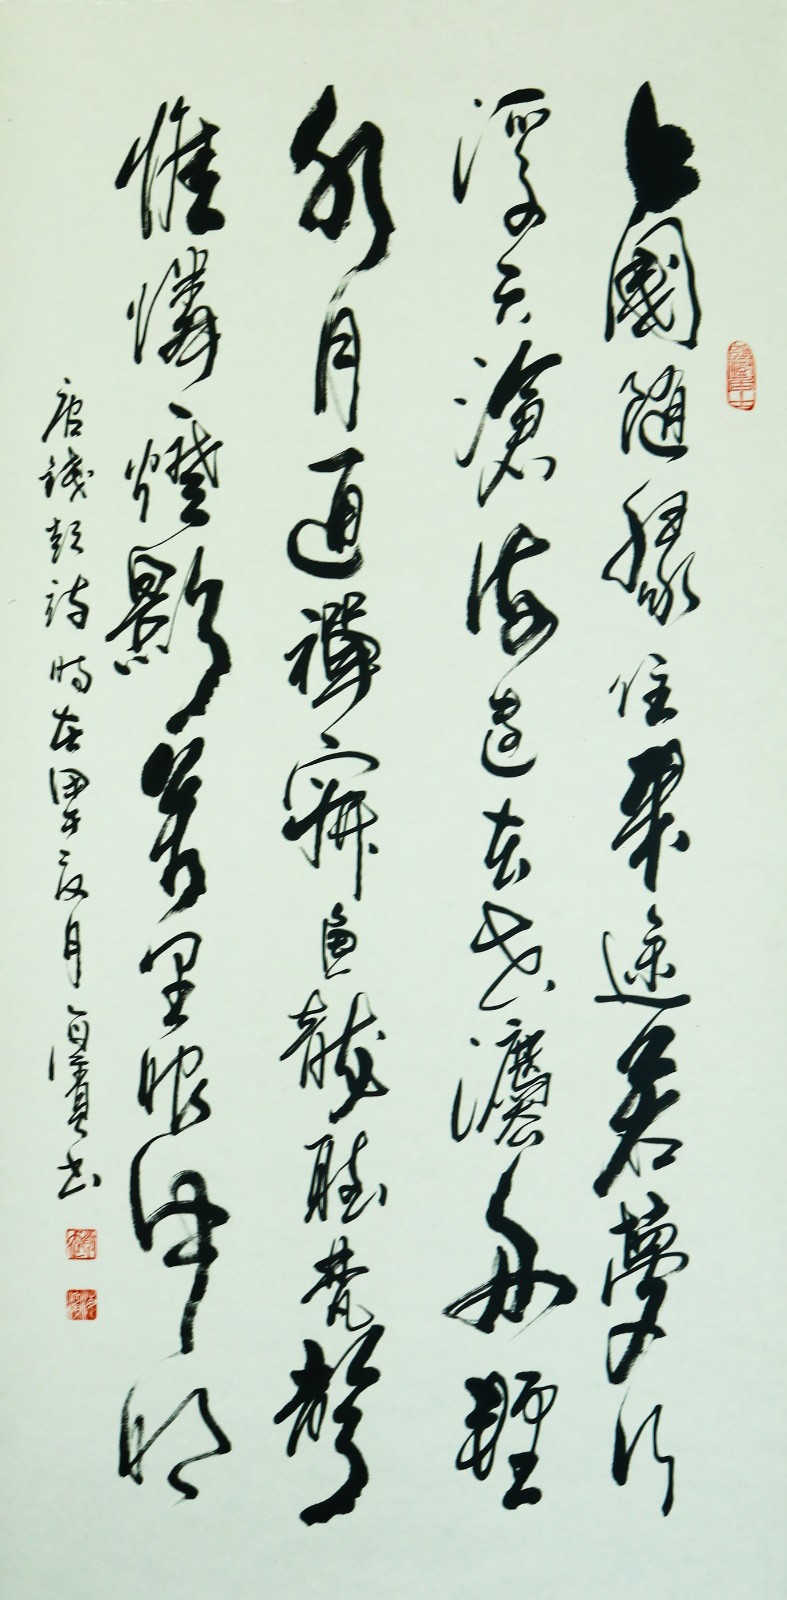 上國隨緣住來途若夢行
浮天滄海遠去世灋舟輕
水月通禪寂魚龍聽梵聲
惟憐一燈影萬里眼中明
唐錢起詩時在甲午夏月書